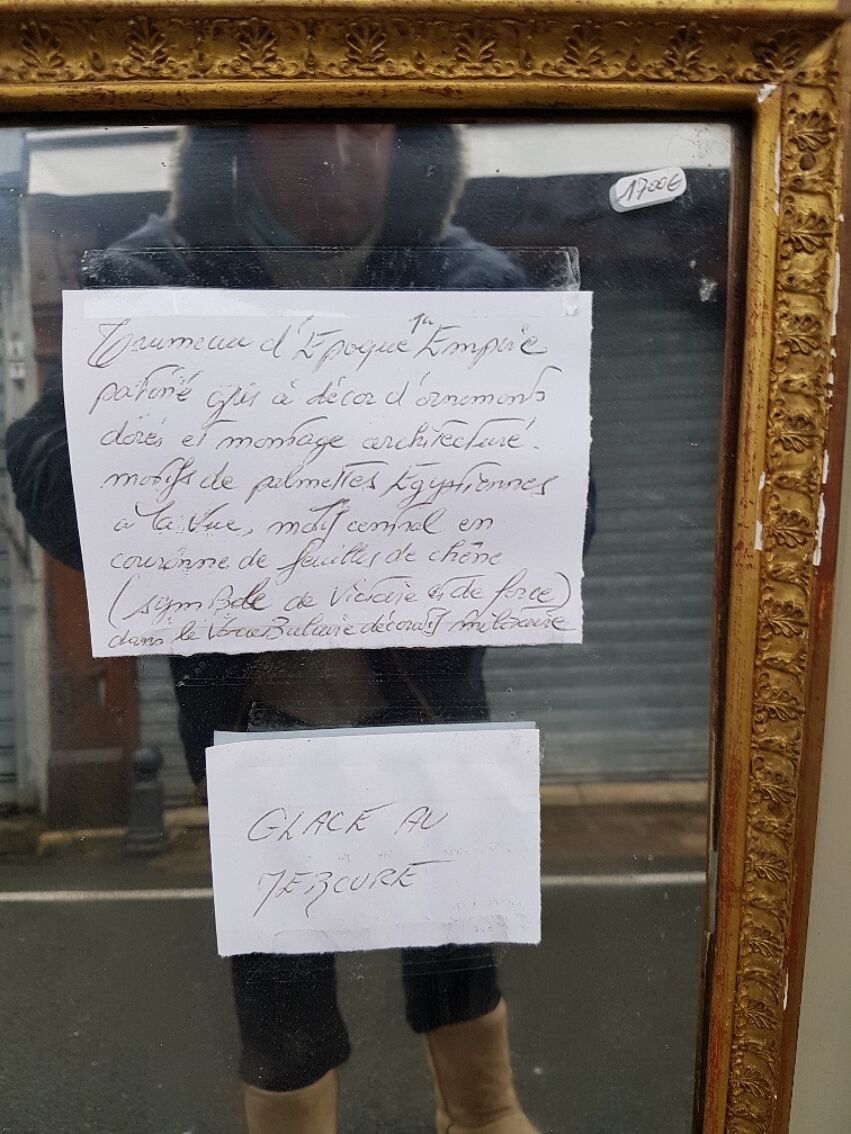 1700€
Trumeau d'Epoque 1er Empire
patiné gris à décor d'ornements
dorés et montage architecturé.
motifs de palmettes Egyptiennes
à la vue, motif central en
couronne de feuilles de chêne
(symBole de Victoire et de force)
dans le VocaBulaire décoratif militaire
GLACE AU
MERCURE